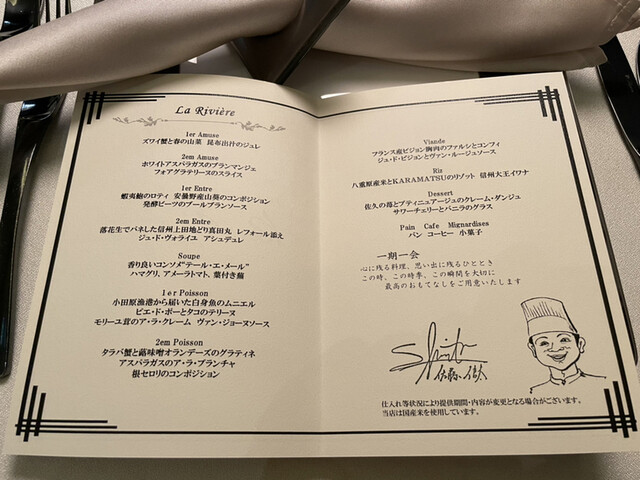 La Rivière
1er Amuse
ズワイ蟹と春の山菜 昆布出汁のジュレ
2em Amuse
ホワイトアスパラガスのブランマンジェ
フォアグラテリーヌのスライス
1er Entre
蝦夷鮑のロティ 安曇野産山葵のコンポジション
発酵ビーツのブールブランソース
2em Entre
落花生でパネした信州上田地どり真田丸 レフォール添え
ジュ・ド・ヴォライユ アシュデュレ
Soupe
香り良いコンソメ"テール・エ・メール"
ハマグリ、アメーラトマト、葉付き蕪
1er Poisson
小田原漁港から届いた白身魚のムニエル
ピエ・ド・ポーとタコのテリーヌ
モリーユ茸のア・ラ・クレーム ヴァン・ジョーヌソース
2em Poisson
タラバ蟹と蕗味噌オランデーズのグラティネ
アスパラガスのア・ラ・プランチャ
根セロリのコンポジション
Viande
フランス産ピジョン胸肉のファルシとコンフィ
ジュ・ド・ピジョンとヴァン・ルージュソース
Riz
八重原産米とKARAMATSUのリゾット 信州大王イワナ
Dessert
佐久の苺とブティニュアージュのクレーム・ダンジュ
サワーチェリーとバニラのグラス
Pain Cafe Mignardises
パン コーヒー 小菓子
一期一会
心に残る料理、思い出に残るひととき
この時、この時季、この瞬間を大切に
最高のおもてなしをご用意いたします
仕入れ等状況により提供期間・内容が変更となる場合がございます。
当店は国産米を使用しています。